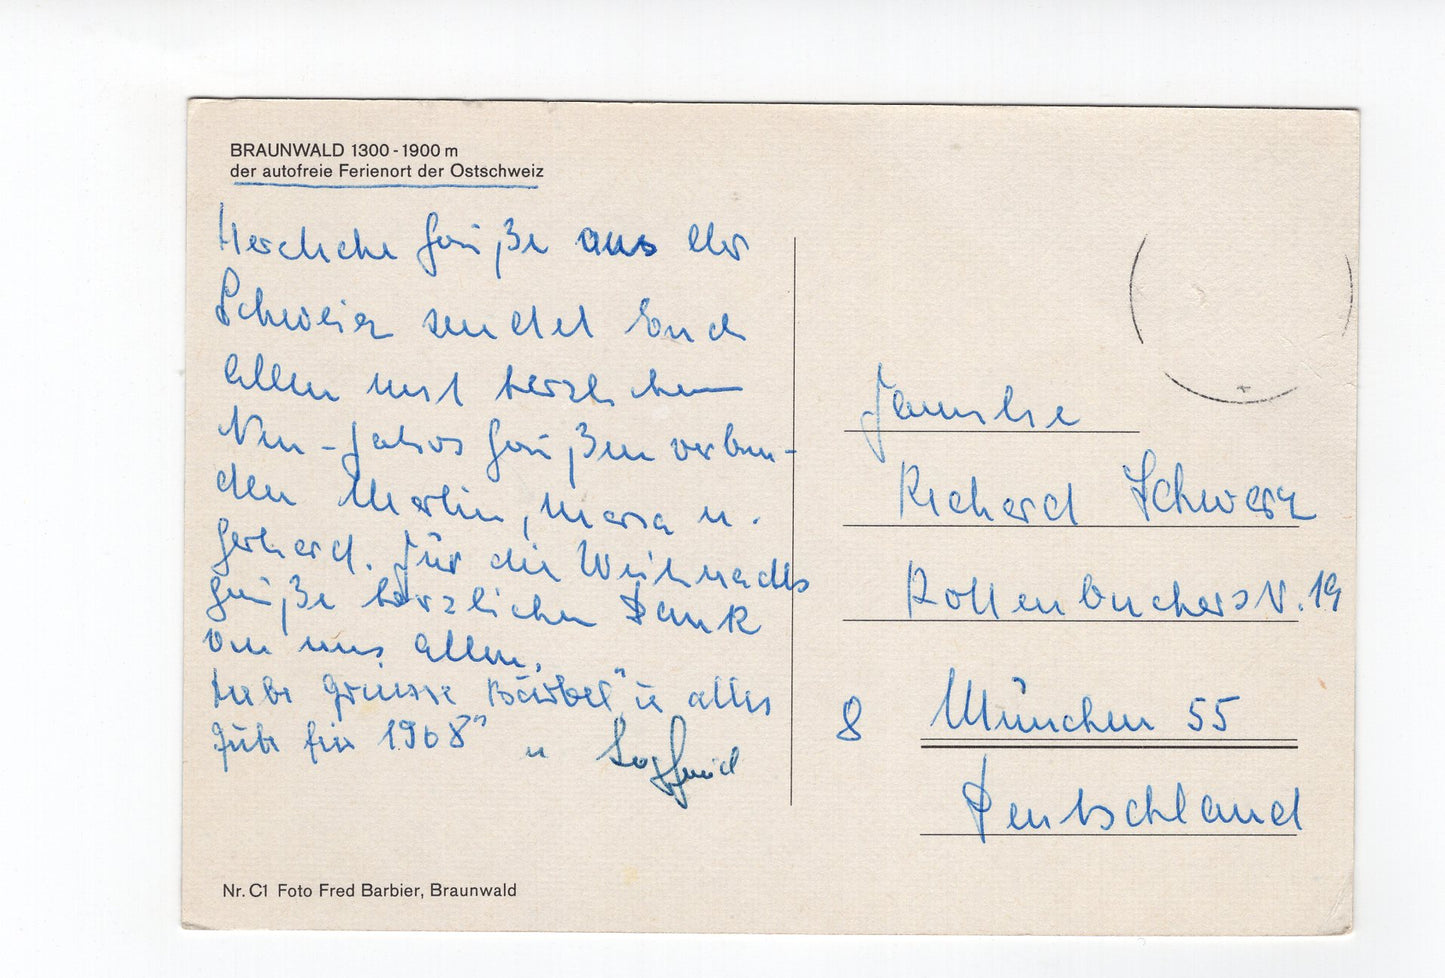 BRAUNWALD 1300-1900 m
der autofreie Ferienort der Ostschweiz
Herzliche Grüße aus der
Schweiz sendet Euch
allen mit herzlichen
Neu-Jahrs Grüßen verbun-
den Martin, Maria u.
Gerhard. Für die Weihnachts
grüße herzlichen Dank
von uns allen.
Liebe Grüsse Bärbel" u alles
Gute für 1968" u Siegfried
Familie
Richard Schwarz
Rottenbucherstr. 19
8 München 55
Deutschland
Nr. C1 Foto Fred Barbier, Braunwald